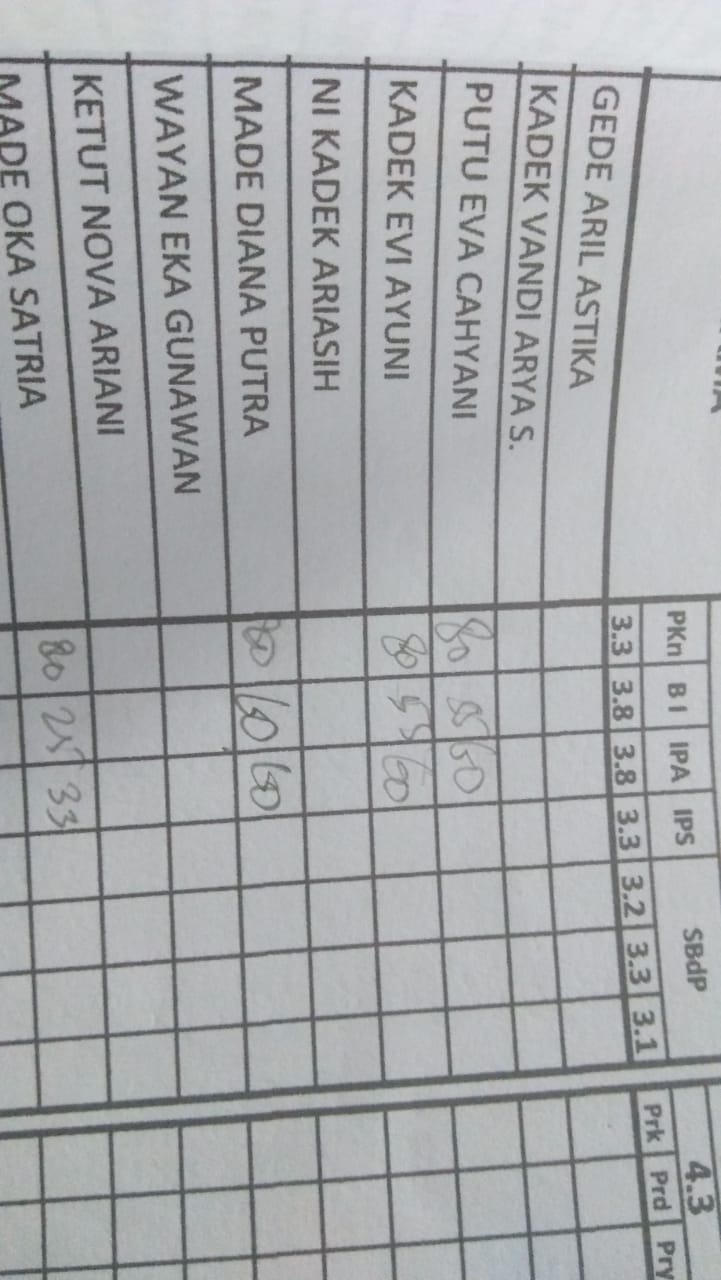 PKn B I IPA IPS SBdP 4.3
Prk Prd Pry
3.3 3.8 3.8 3.3 3.2 3.3 3.1
GEDE ARIL ASTIKA
KADEK VANDI ARYA S.
PUTU EVA CAHYANI 80 55 60
KADEK EVI AYUNI 80 55 60
NI KADEK ARIASIH
MADE DIANA PUTRA 80 60 60
WAYAN EKA GUNAWAN
KETUT NOVA ARIANI
MADE OKA SATRIA 80 25 33